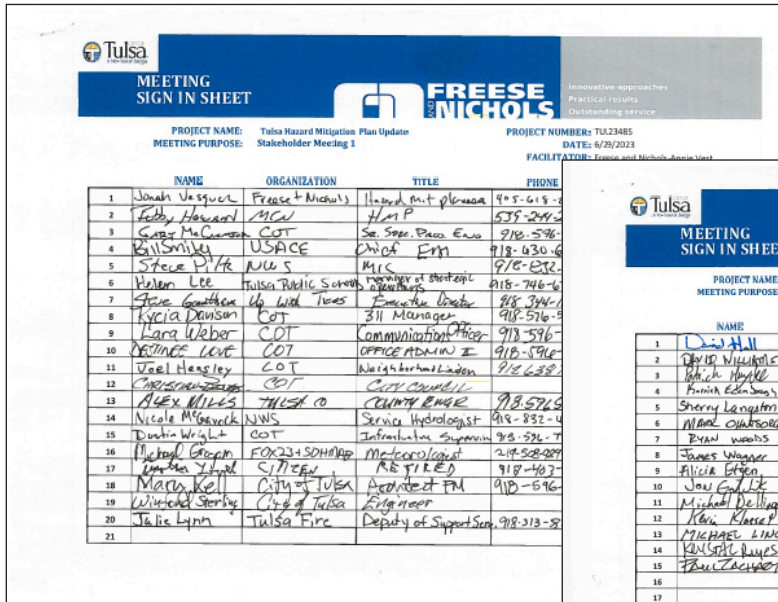 Tulsa
MEETING
SIGN IN SHEET
FREESE
AND
NICHOLS
Innovative approaches
Practical results
Outstanding service
PROJECT NAME: Tulsa Hazard Mitigation Plan Update
PROJECT NUMBER: TUL23485
MEETING PURPOSE: Stakeholder Meeting 1
DATE: 6/29/2023
FACILITATOR: Freese and Nichols-Annie Vest
NAME ORGANIZATION TITLE PHONE
1 Jonah Vasquez Freese + Nichols Hazard mit planner 405-618-
2 Howard MCN HMP 539-244-2
3 GARY COT 918-596-
4 Bill Smiley USACE Chief Em 918-630-6
5 Steve Piltz NWS MIC 918-832-
6 Helen Lee Tulsa Public Schools manager of strategic operations 918-746-6
7 Steve Up With Trees Executive Director 918-344-1
8 Kycia Davison COT 311 Manager 918-576-5
9 Lara Weber COT Communications Officer 918-596-
10 DESTINEE LOVE COT OFFICE ADMIN II 918-596-
11 Joel Hensley COT Neighborhood Liaison
12 CHRISTIAN COT CITY COUNCIL
13 ALEX MILLS TULSA CO COUNTY ENGR 918.5965
14 Nicole McGavock NWS Service Hydrologist 918-832-4
15 Dustin Wright COT Infrastructure Supervisor 918-596-7
16 Michael Grogan FOX23 + SDHMAB Meteorologist
17 CITIZEN RETIRED 918-403-
18 Mary Kell City of Tulsa Architect FM 918-596-
19 Winford Sterling City of Tulsa Engineer
20 Julie Lynn Tulsa Fire Deputy of Support Serv. 918-313-58
21
Tulsa
MEETING
SIGN IN SHEE
PROJECT NAME
MEETING PURPOSE
NAME
1 David Hall
2 DAVID WILLIAMS
3
4
5 Sherry Langston
6 MARK
7 RYAN WOODS
8 James Wagner
9 Alicia Etgen
10 Jon
11 Michael Dellinge
12 Kevin
13 MICHAEL LING
14 KRYSTAL Reyes
15 PAUL ZACHARY
16
17